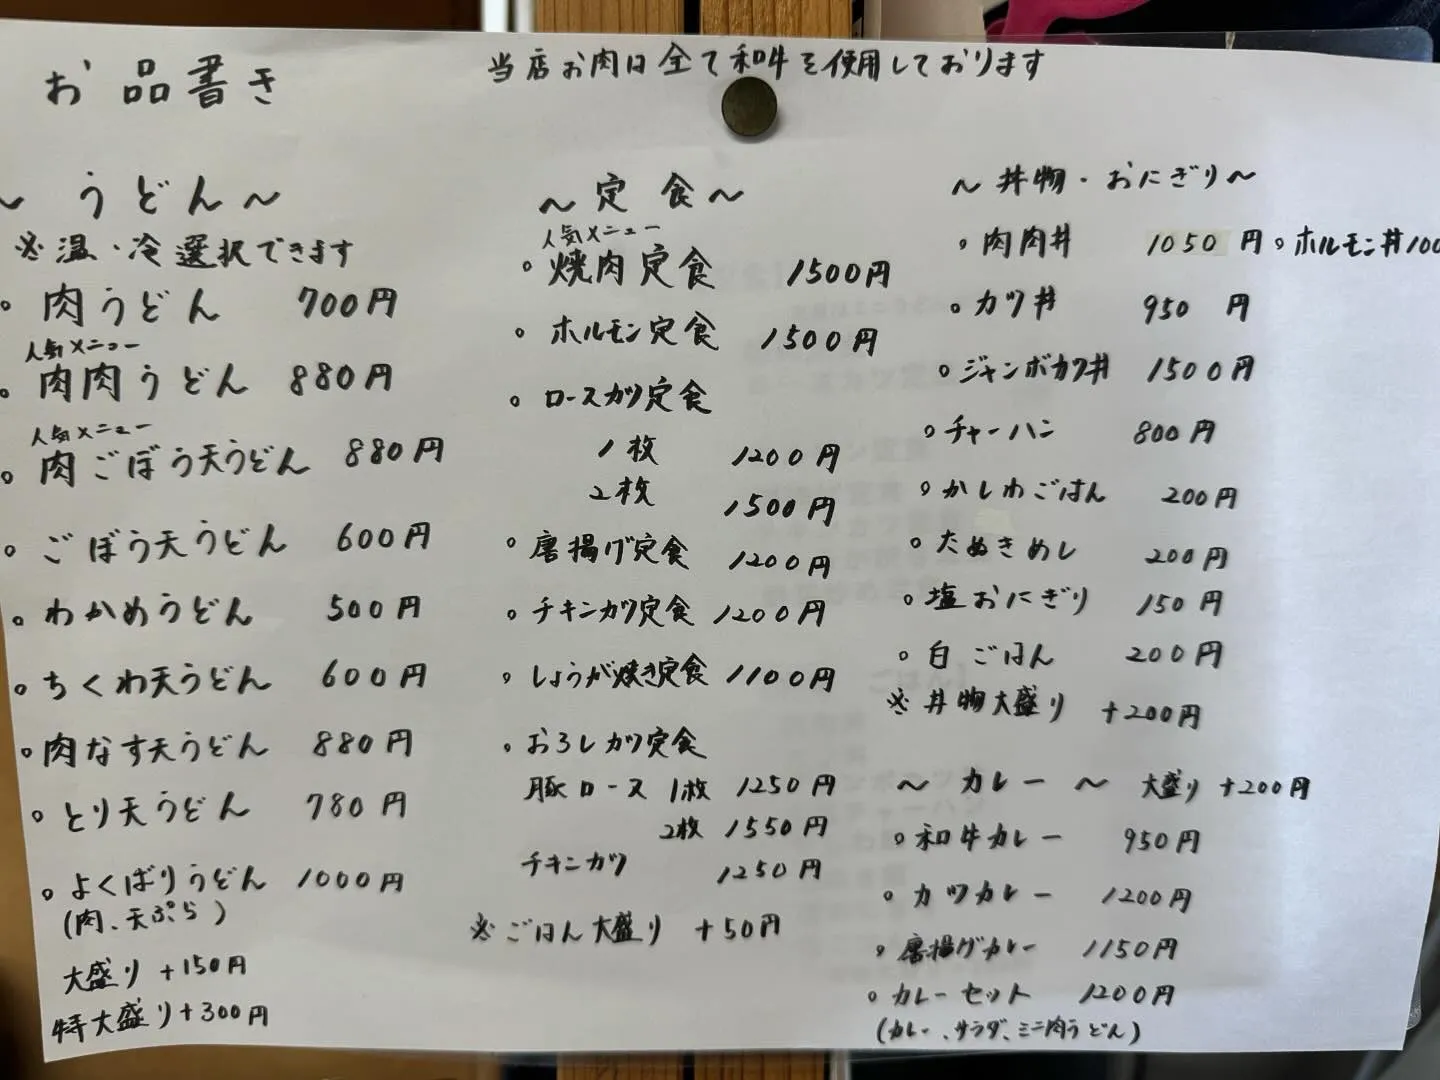 お品書き
当店お肉は全て和牛を使用しております
～うどん～
※温・冷選択できます
。肉うどん 700円
人気メニュー
。肉肉うどん 880円
人気メニュー
。肉ごぼう天うどん 880円
。ごぼう天うどん 600円
。わかめうどん 500円
。ちくわ天うどん 600円
。肉なす天うどん 880円
。とり天うどん 780円
。よくばりうどん 1000円
(肉、天ぷら)
大盛り +150円
特大盛り+300円
～定食～
人気メニュー
。焼肉定食 1500円
。ホルモン定食 1500円
。ロースカツ定食
1枚 1200円
2枚 1500円
。唐揚げ定食 1200円
。チキンカツ定食 1200円
。しょうが焼き定食 1100円
。おろしカツ定食
豚ロース 1枚 1250円
2枚 1550円
チキンカツ 1250円
※ごはん大盛り +50円
～丼物・おにぎり～
。肉肉丼 1050円 。ホルモン丼100
。カツ丼 950円
。ジャンボカツ丼 1500円
。チャーハン 800円
。かしわごはん 200円
。たぬきめし 200円
。塩おにぎり 150円
。白ごはん 200円
※丼物大盛り +200円
～カレー～ 大盛り +200円
。和牛カレー 950円
。カツカレー 1200円
。唐揚げカレー 1150円
。カレーセット 1200円
(カレー、サラダ、ミニ肉うどん)